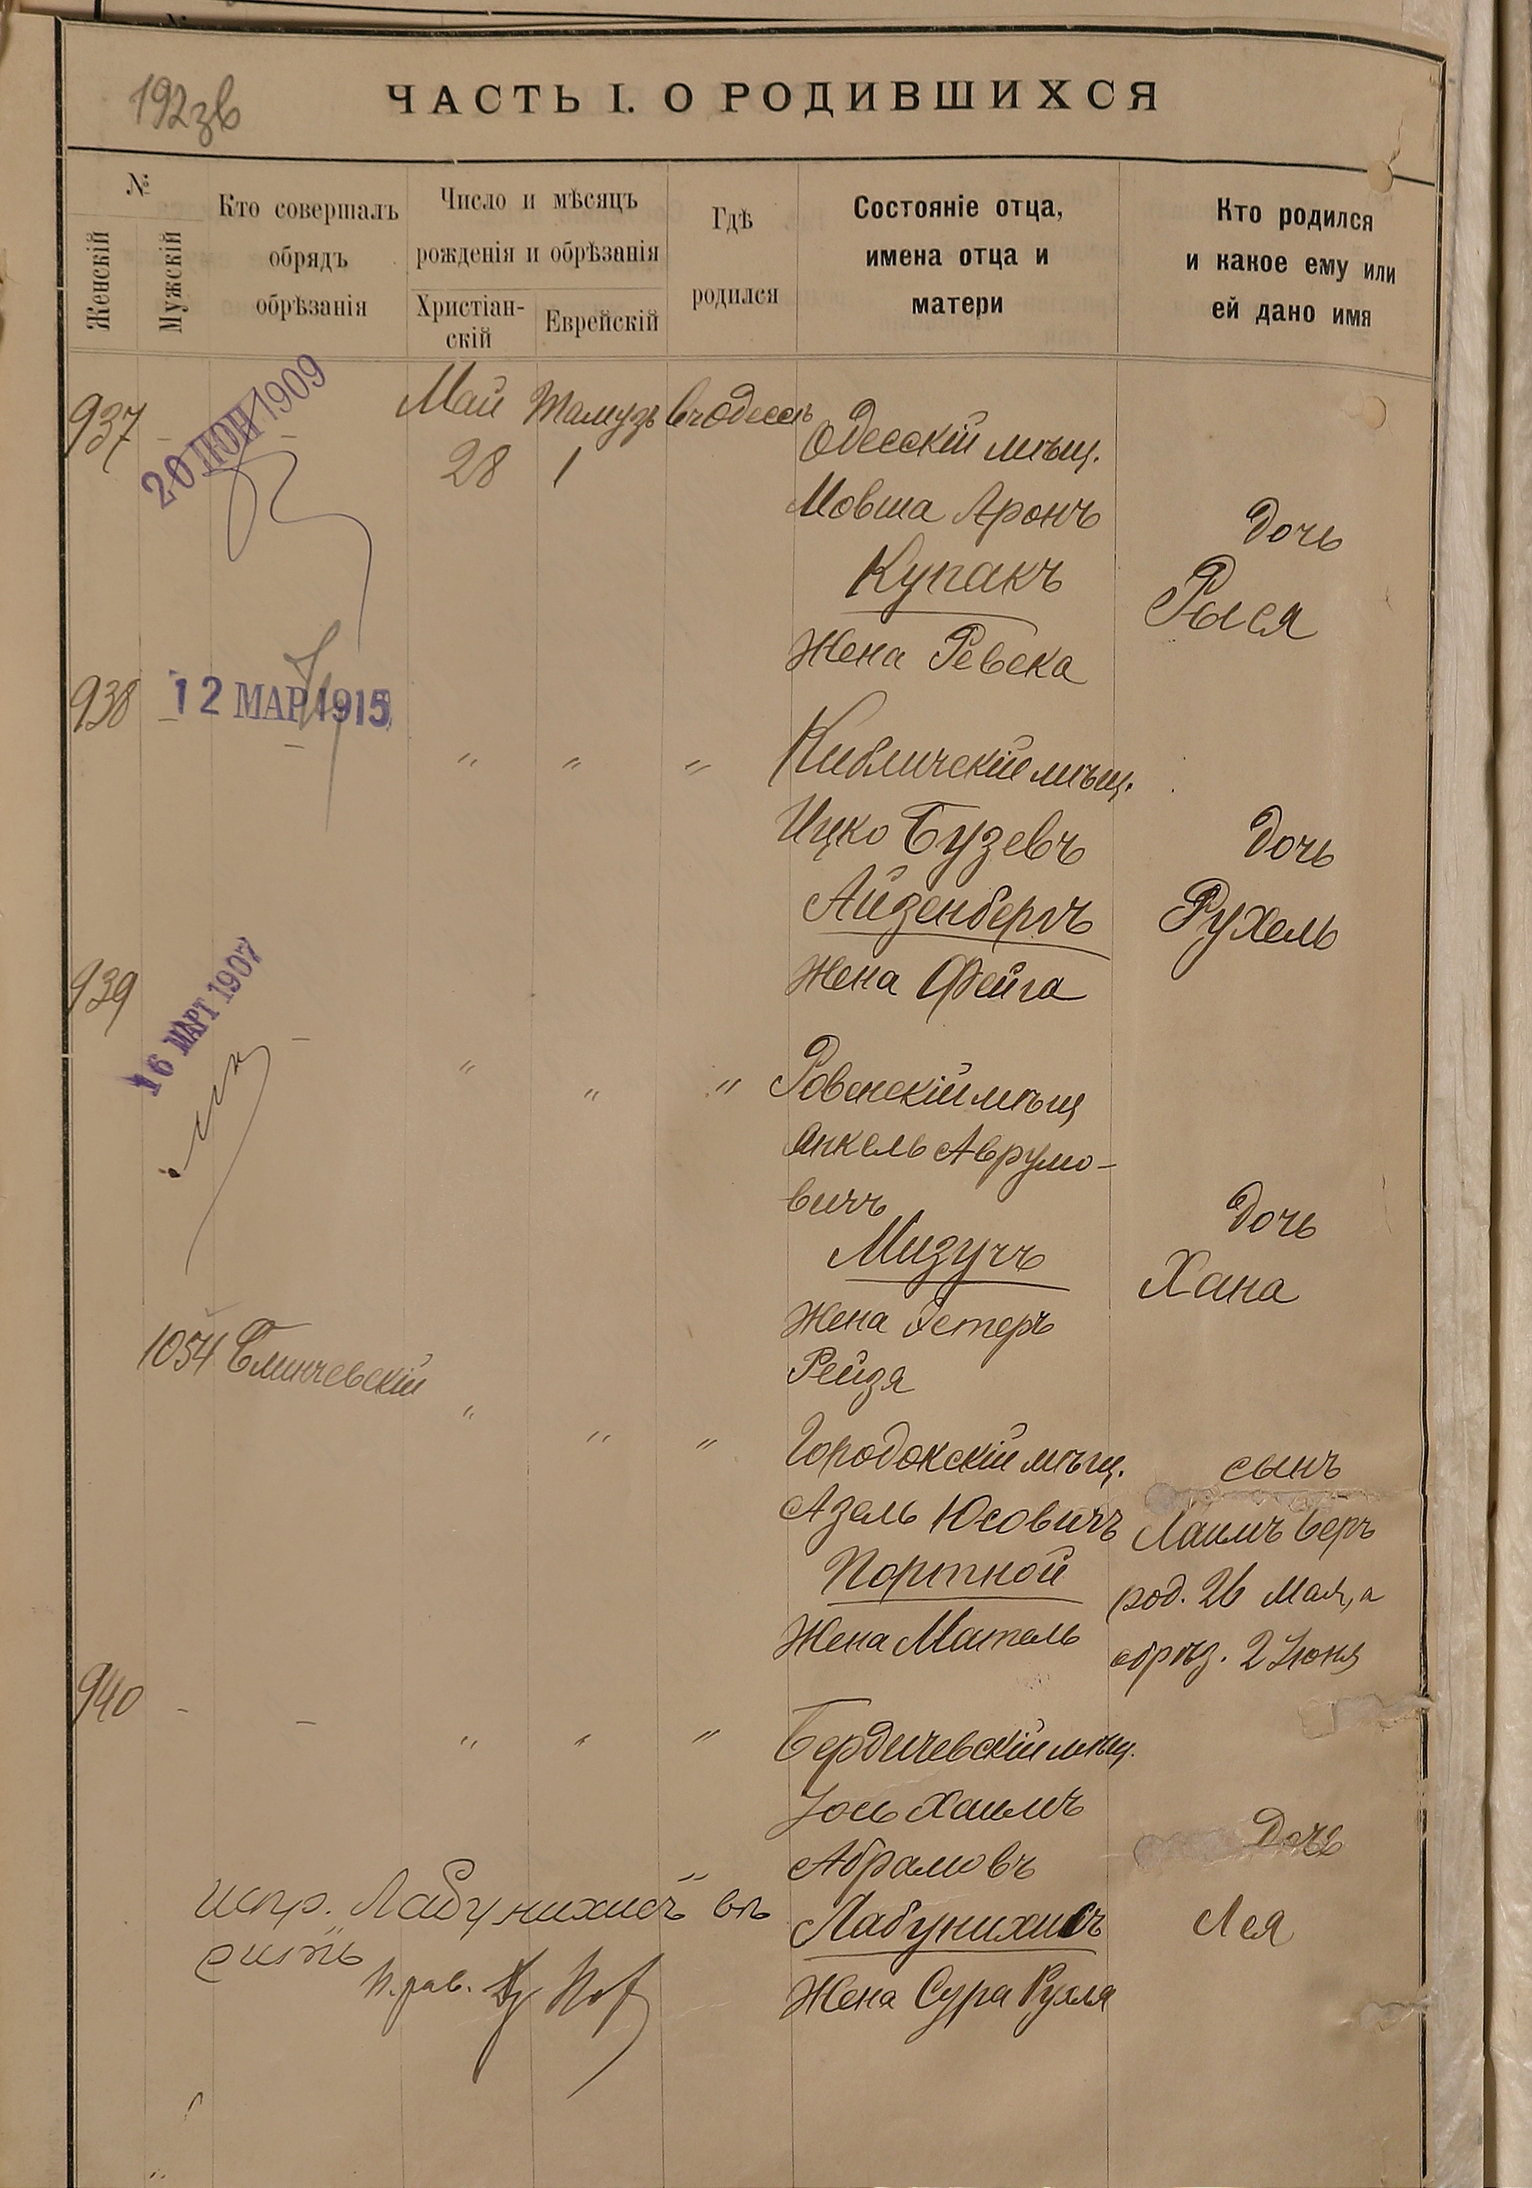 192 зв
ЧАСТЬ I. О РОДИВШИХСЯ
№
Женскій
Мужскій
Кто совершалъ
обрядъ
обрѣзанія
Число и мѣсяцъ
рожденія и обрѣзанія
Христіан-
скій
Еврейскій
Гдѣ
родился
Состояніе отца,
имена отца и
матери
Кто родился
и какое ему или
ей дано имя
937 - - Май Тамузъ въ Одессѣ
20 ІЮН 1909
28 1
Одесскій мѣщ.
Мовша Аронъ
Купакъ
Жена Ревека
дочь
Рыся
938 -
12 МАР 1915
- " " "
Кибличскій мѣщ.
Ицко Бузевъ
Айзенбергъ
Жена Фейга
дочь
Рухель
939
16 МАРТ 1907
- " " "
Ровенскій мѣщ
Янкель Аврумо-
вичъ
Мизучъ
Жена Эстеръ
Рейзя
дочь
Хана
1054 Блинчевскій
" " "
Городокскій мѣщ.
Азель Юсовичъ
Портной
Жена Матель
сынъ
Хаимъ Беръ
род. 26 Мая, а
обрѣз. 2 Іюня
940 - - " " "
Бердичевскій мѣщ.
Іось Хаимъ
Абрамовъ
Лабунихисъ
Жена Сура Рухля
Дочь
Лея
испр. "Лабунихисъ" вѣ
рить